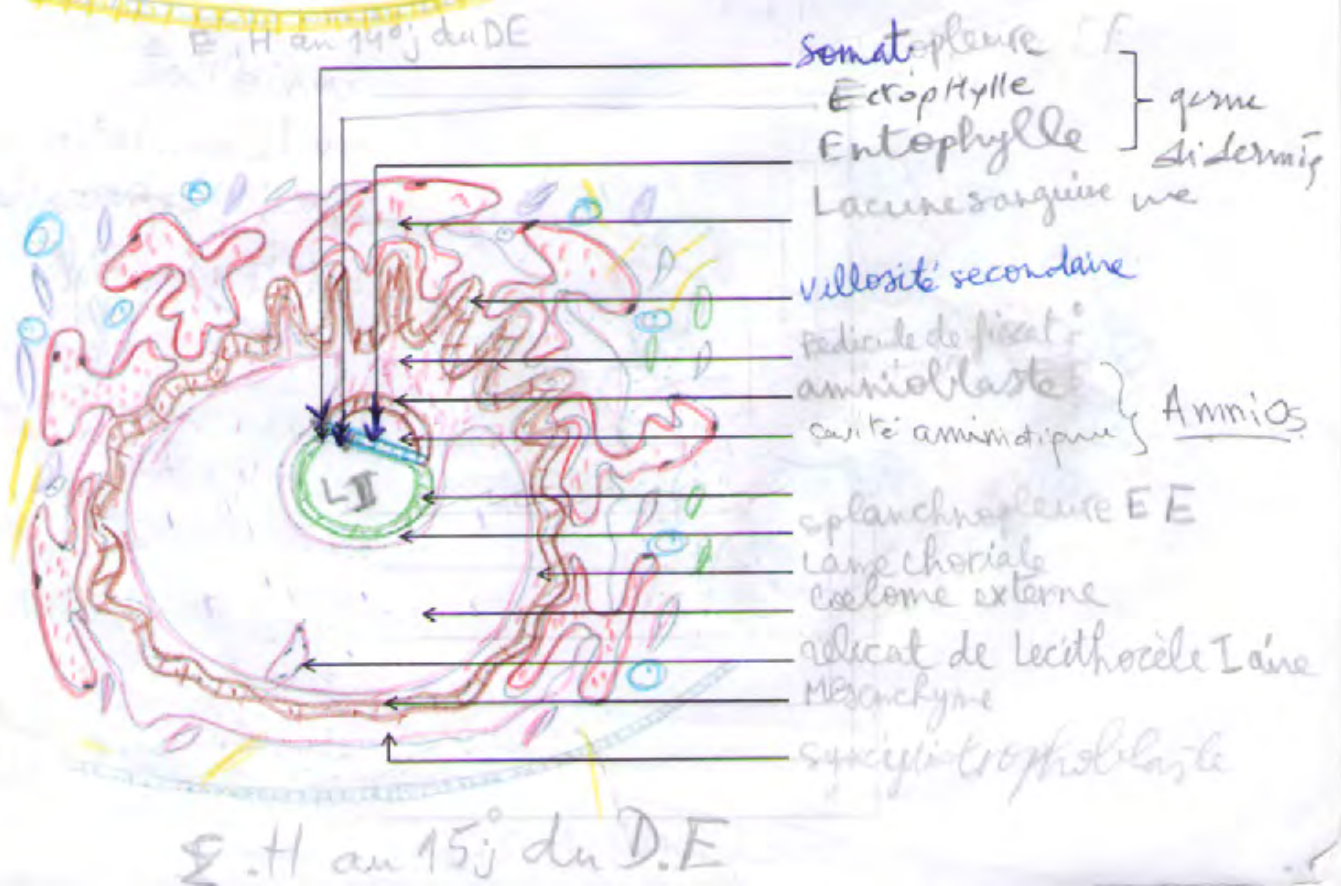 E.H au 14°j du DE
Somatopleure
Ectophylle
Entophylle
germe
didermiq
Lacune sanguine
villosité secondaire
Pédicule de fixat°
amnioblaste
cavité aminiotique
Amnios
LII
splanchnopleure E E
Lame choriale
cœlome externe
relicat de Lécithocèle I aire
Mésenchyme
syncytiotrophoblaste
E.H au 15°j du D.E